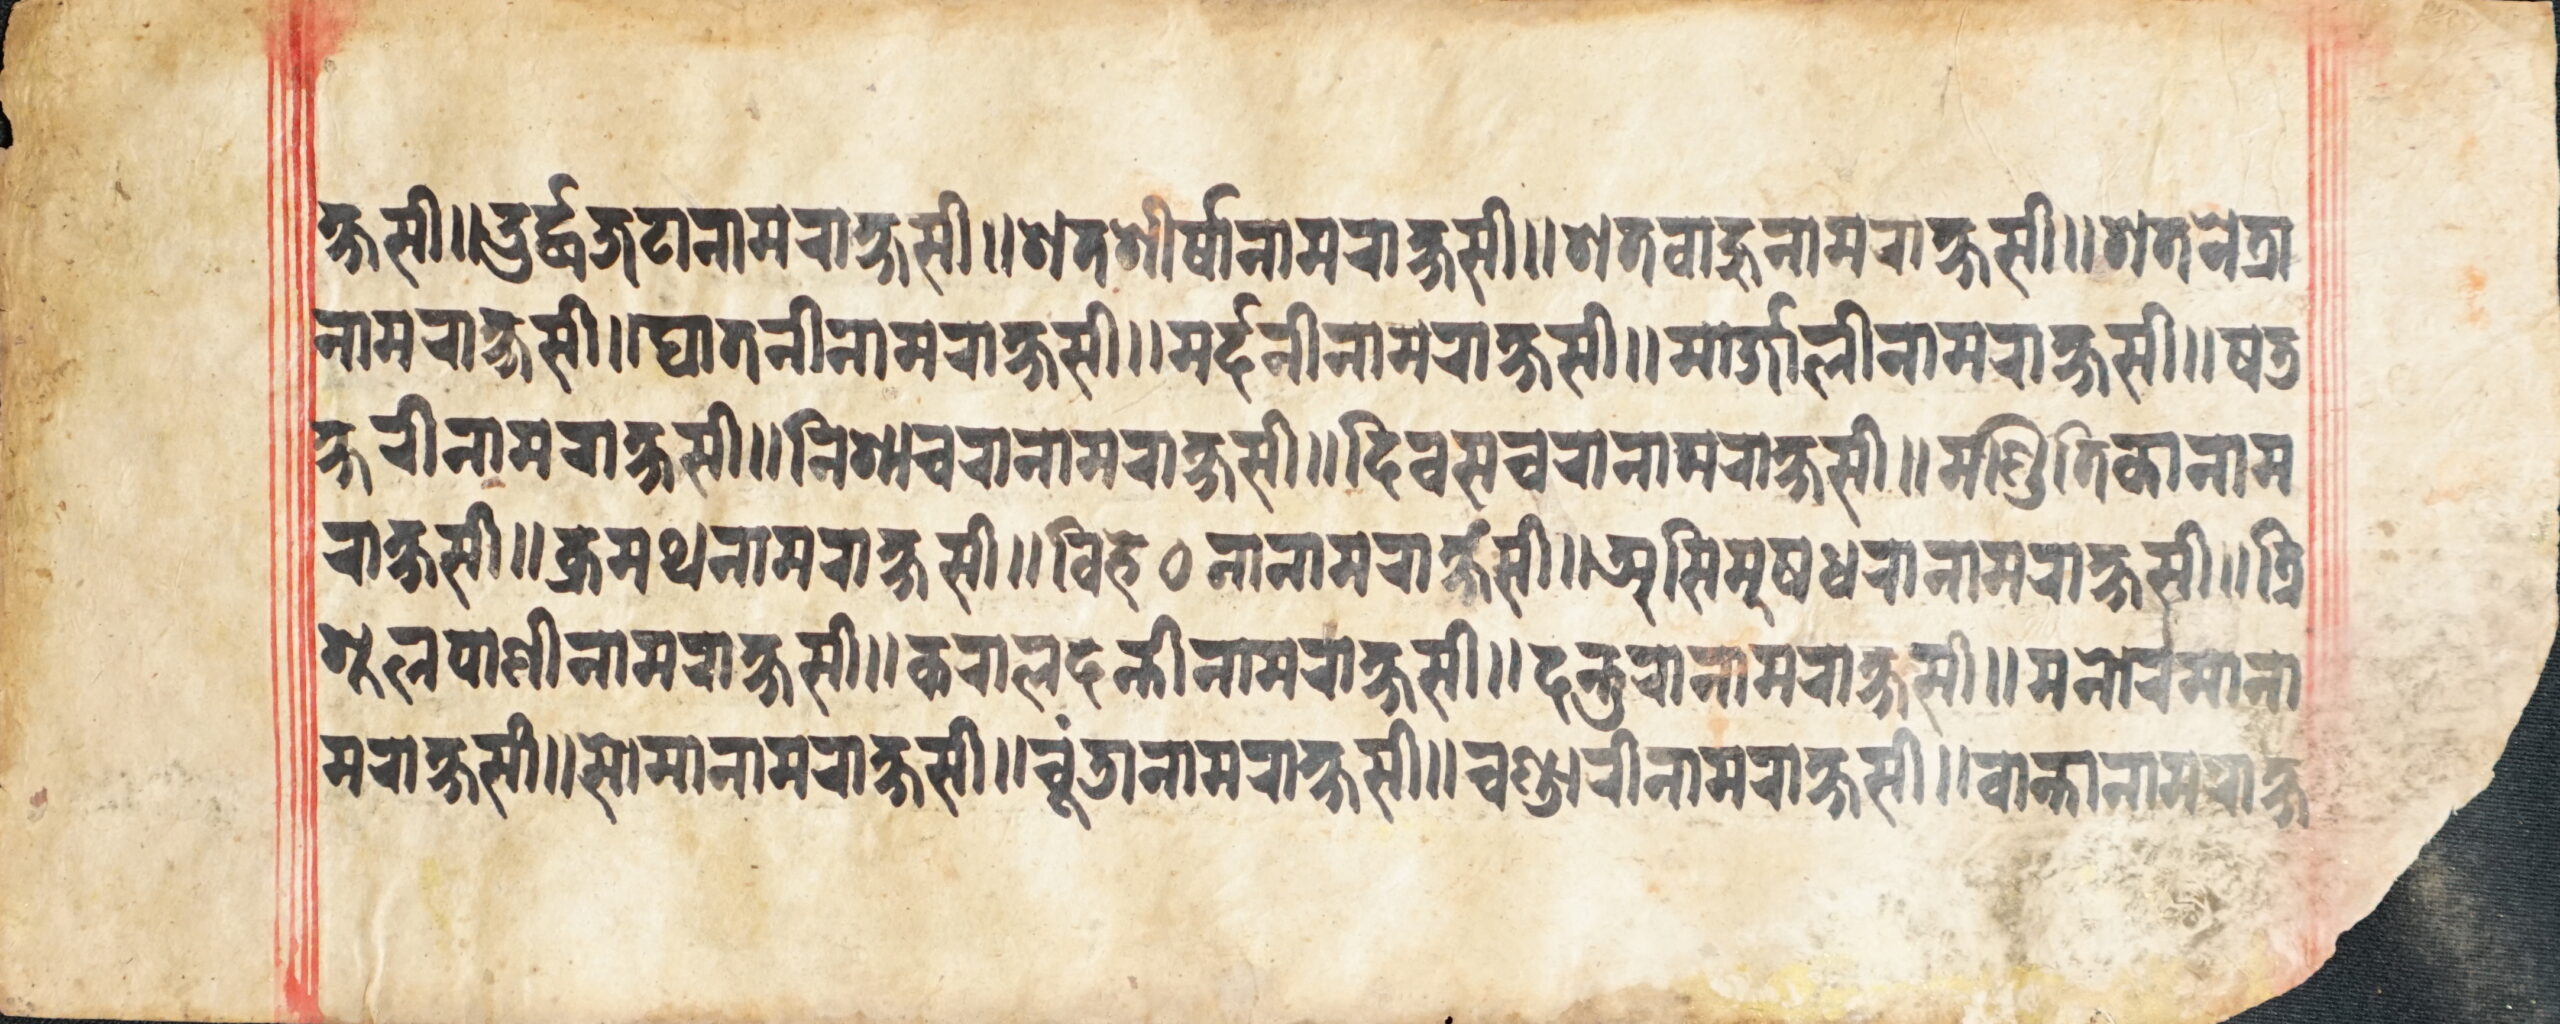 क्षसी॥दुर्द्धजटानामराक्षसी॥शतशीर्षानामराक्षसी॥शतवाहुनामराक्षसी॥शतनेत्रा
नामराक्षसी॥घातनीनामराक्षसी॥मर्द्दनीनामराक्षसी॥मार्जालीनामराक्षसी॥षड
क्षरीनामराक्षसी॥निशाचरानामराक्षसी॥दिवसचरानामराक्षसी॥मण्डितिकानाम
राक्षसी॥क्रमथनामराक्षसी॥विहेठनानामराक्षसी॥असिमूषधरानामराक्षसी॥त्रि
शूलपाणीनामराक्षसी॥करालदन्तीनामराक्षसी॥दन्तुरानामराक्षसी॥मनोरमाना
मराक्षसी॥सोमानामराक्षसी॥चूंडानामराक्षसी॥चण्डारीनामराक्षसी॥वान्तानामराक्ष